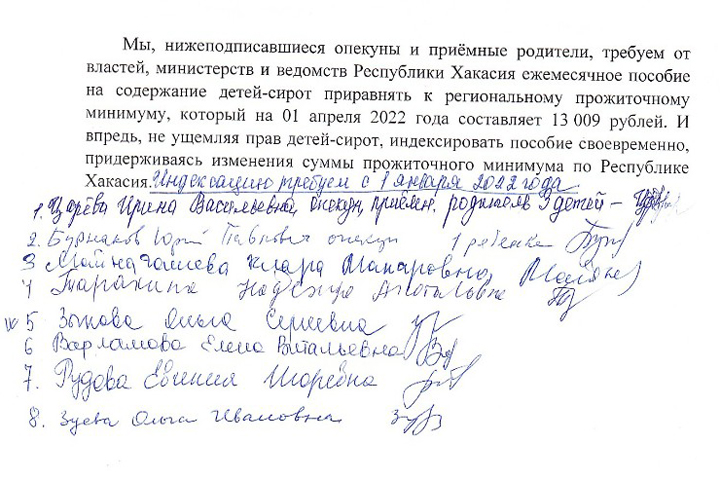 Мы, нижеподписавшиеся опекуны и приёмные родители, требуем от
властей, министерств и ведомств Республики Хакасия ежемесячное пособие
на содержание детей-сирот приравнять к региональному прожиточному
минимуму, который на 01 апреля 2022 года составляет 13 009 рублей. И
впредь, не ущемляя прав детей-сирот, индексировать пособие своевременно,
придерживаясь изменения суммы прожиточного минимума по Республике
Хакасия. Индексацию требуем с 1 января 2022 года
1. Царёва Ирина Васильевна, опекун, приёмн. родитель 9 детей –
2. Бурнаков Юрий Павлович опекун 1 ребенка
3 Майнагашева Клара Макаровна,
4 Надежда Анатольевна
5 Зыкова Ольга Сергеевна
6 Варламова Елена Витальевна
7. Рудова Евгения Игоревна
8. Зуева Ольга Ивановна